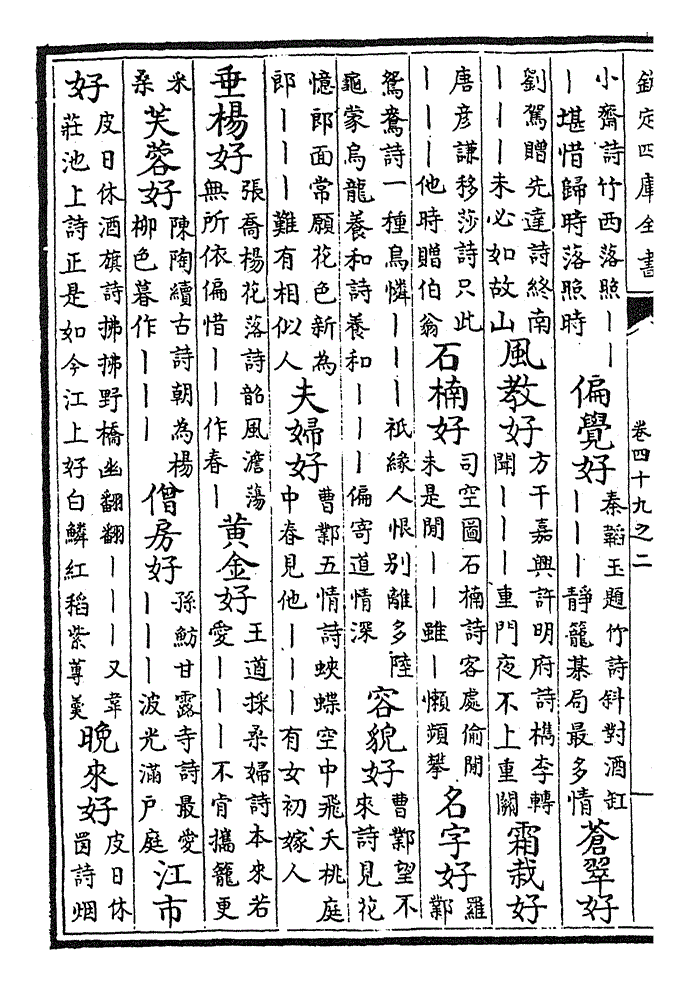 欽定四庫全書　卷四十九之二
小齋詩竹西落照丨丨
丨堪惜歸時落照時
偏覺好
秦韜玉題竹詩斜對酒缸
丨丨丨靜籠棊局最多情
蒼翠好
劉駕贈先達詩終南
丨丨丨未必如故山
風教好
方干嘉興許明府詩檇李轉
聞丨丨丨重門夜不上重關
霜栽好
唐彦謙移莎詩只此
丨丨丨他時贈伯翁
石楠好
司空圖石楠詩客處偷閒
未是閒丨丨雖丨懶頻攀
名字好
羅
鄴
鴛鴦詩一種鳥憐丨丨丨祇緣人恨别離多陸
龜蒙烏龍養和詩養和丨丨丨偏寄道情深
容貌好
曹鄴望不
來詩見花
憶郎面常願花色新為
郎丨丨丨難有相似人
夫婦好
曹鄴五情詩蛺蝶空中飛夭桃庭
中春見他丨丨丨有女初嫁人
垂楊好
張喬楊花落詩韶風澹蕩
無所依偏惜丨丨作春丨
黄金好
王遒採桑婦詩本來若
愛丨丨丨不肯攜籠更
采
桑
芙蓉好
陳陶續古詩朝為楊
柳色暮作丨丨丨
僧房好
孫魴甘露寺詩最愛
丨丨丨波光滿户庭
江市
好
皮日休酒旗詩拂拂野橋幽翻翻丨丨丨又韋
莊池上詩正是如今江上好白鱗紅稻紫蓴羹
晚來好
皮日休
茵詩烟